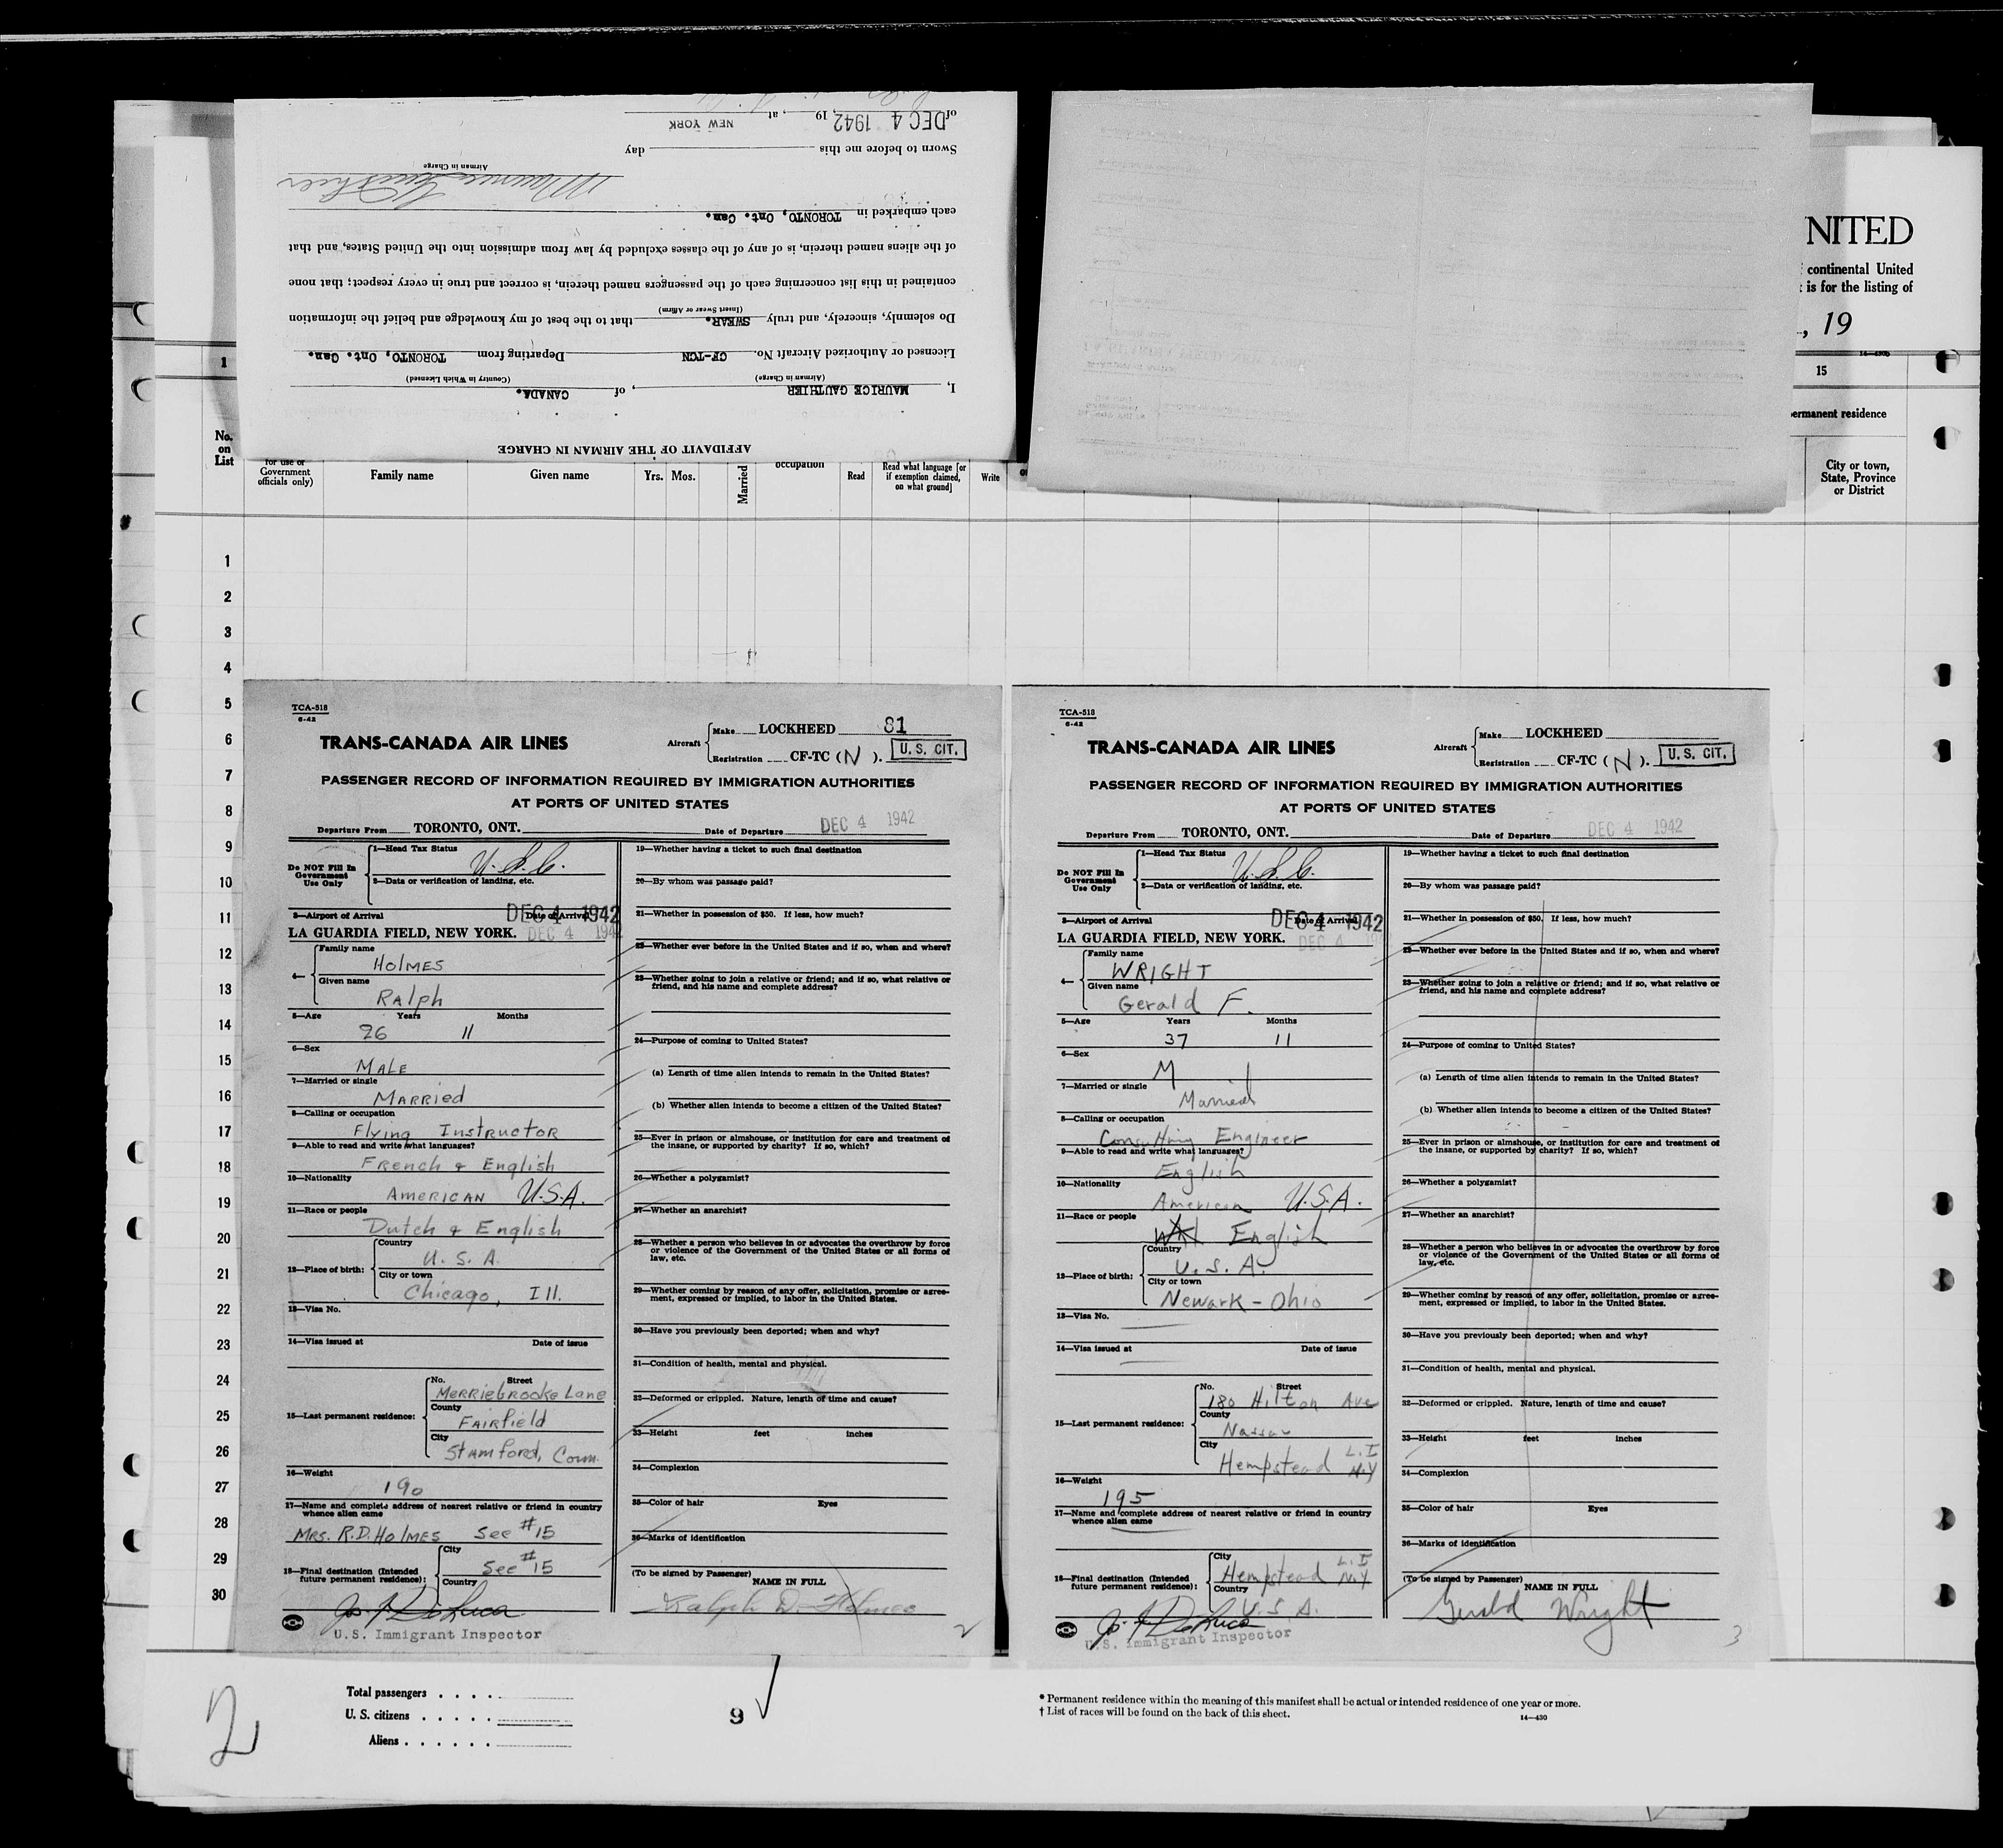 AFFIDAVIT OF THE AIRMAN IN CHARGE
I, MAURICE GAUTHIER, of CANADA.
(Airman in Charge) (Country in Which Licensed)
Licensed or Authorized Aircraft No. CF-TCN Departing from TORONTO, Ont. Can.
Do solemnly, sincerely, and truly SWEAR. that to the best of my knowledge and belief the information
(Insert Swear or Affirm)
contained in this list concerning each of the passengers named therein, is correct and true in every respect; that none
of the aliens named therein, is of any of the classes excluded by law from admission into the United States, and that
each embarked in TORONTO, Ont. Can.
Maurice Gauthier
Airman in Charge
Sworn to before me this day
of DEC 4 1942, 19 , at NEW YORK
NITED
continental United
is for the listing of
, 19
14—430b
1
15
ermanent residence
No.
on
List
for use of
Government
officials only)
Family name
Given name
Yrs.
Mos.
Married
occupation
Read
Read what language [or
if exemption claimed,
on what ground]
Write
City or town,
State, Province
or District
1
2
3
4
5
6
7
8
9
10
11
12
13
14
15
16
17
18
19
20
21
22
23
24
25
26
27
28
29
30
TCA-518
6-42
TRANS-CANADA AIR LINES
Aircraft
Make LOCKHEED 81
Registration CF-TC (N).
U. S. CIT.
PASSENGER RECORD OF INFORMATION REQUIRED BY IMMIGRATION AUTHORITIES
AT PORTS OF UNITED STATES
Departure From TORONTO, ONT. Date of Departure DEC 4 1942
Do NOT Fill In
Government
Use Only
1—Head Tax Status U.S.C.
2—Data or verification of landing, etc.
3—Airport of Arrival Date of Arrival DEC 4 1942
LA GUARDIA FIELD, NEW YORK. DEC 4 194
4—
Family name
HOLMES
Given name
RAlph
5—Age Years Months
26 11
6—Sex
MALE
7—Married or single
MARRIEd
8—Calling or occupation
Flying InstructoR
9—Able to read and write what languages?
French & English
10—Nationality
AMERICAN U.S.A.
11—Race or people
Dutch & English
12—Place of birth:
Country
U. S. A.
City or town
Chicago, Ill.
13—Visa No.
14—Visa issued at Date of issue
15—Last permanent residence:
No. Street
MERRIEbROOKe Lane
County
FAIRfield
City
StAMford, Conn.
16—Weight
190
17—Name and complete address of nearest relative or friend in country
whence alien came
MRS. R.D. HOLMES See #15
18—Final destination (Intended
future permanent residence):
City
See #15
Country
Jos. J. DeLuca
U.S. Immigrant Inspector
19—Whether having a ticket to such final destination
20—By whom was passage paid?
21—Whether in possession of $50. If less, how much?
22—Whether ever before in the United States and if so, when and where?
23—Whether going to join a relative or friend; and if so, what relative or
friend, and his name and complete address?
24—Purpose of coming to United States?
(a) Length of time alien intends to remain in the United States?
(b) Whether alien intends to become a citizen of the United States?
25—Ever in prison or almshouse, or institution for care and treatment of
the insane, or supported by charity? If so, which?
26—Whether a polygamist?
27—Whether an anarchist?
28—Whether a person who believes in or advocates the overthrow by force
or violence of the Government of the United States or all forms of
law, etc.
29—Whether coming by reason of any offer, solicitation, promise or agree-
ment, expressed or implied, to labor in the United States.
30—Have you previously been deported; when and why?
31—Condition of health, mental and physical.
32—Deformed or crippled. Nature, length of time and cause?
33—Height feet inches
34—Complexion
35—Color of hair Eyes
36—Marks of identification
(To be signed by Passenger)
NAME IN FULL
Ralph D. Holmes
2
TCA-518
6-42
TRANS-CANADA AIR LINES
Aircraft
Make LOCKHEED
Registration CF-TC (N).
U. S. CIT.
PASSENGER RECORD OF INFORMATION REQUIRED BY IMMIGRATION AUTHORITIES
AT PORTS OF UNITED STATES
Departure From TORONTO, ONT. Date of Departure DEC 4 1942
Do NOT Fill In
Government
Use Only
1—Head Tax Status U.S.C.
2—Data or verification of landing, etc.
3—Airport of Arrival Date of Arrival DEC 4 1942
LA GUARDIA FIELD, NEW YORK. DEC 4
4—
Family name
WRIGHT
Given name
Gerald F.
5—Age Years Months
37 11
6—Sex
M
7—Married or single
Married
8—Calling or occupation
Consulting Engineer
9—Able to read and write what languages?
English
10—Nationality
American U.S.A.
11—Race or people
English
12—Place of birth:
Country
U. S. A.
City or town
Newark - Ohio
13—Visa No.
14—Visa issued at Date of issue
15—Last permanent residence:
No. Street
180 Hilton Ave
County
Nassau
City
Hempstead L.I N.Y
16—Weight
195
17—Name and complete address of nearest relative or friend in country
whence alien came
18—Final destination (Intended
future permanent residence):
City
Hempstead L.I N.Y
Country
U.S.A.
Jos. J. DeLuca
U.S. Immigrant Inspector
19—Whether having a ticket to such final destination
20—By whom was passage paid?
21—Whether in possession of $50. If less, how much?
22—Whether ever before in the United States and if so, when and where?
23—Whether going to join a relative or friend; and if so, what relative or
friend, and his name and complete address?
24—Purpose of coming to United States?
(a) Length of time alien intends to remain in the United States?
(b) Whether alien intends to become a citizen of the United States?
25—Ever in prison or almshouse, or institution for care and treatment of
the insane, or supported by charity? If so, which?
26—Whether a polygamist?
27—Whether an anarchist?
28—Whether a person who believes in or advocates the overthrow by force
or violence of the Government of the United States or all forms of
law, etc.
29—Whether coming by reason of any offer, solicitation, promise or agree-
ment, expressed or implied, to labor in the United States.
30—Have you previously been deported; when and why?
31—Condition of health, mental and physical.
32—Deformed or crippled. Nature, length of time and cause?
33—Height feet inches
34—Complexion
35—Color of hair Eyes
36—Marks of identification
(To be signed by Passenger)
NAME IN FULL
Gerald Wright
3
2
Total passengers . . . .
U. S. citizens . . . . .
Aliens . . . . . .
9
* Permanent residence within the meaning of this manifest shall be actual or intended residence of one year or more.
† List of races will be found on the back of this sheet.
14—430